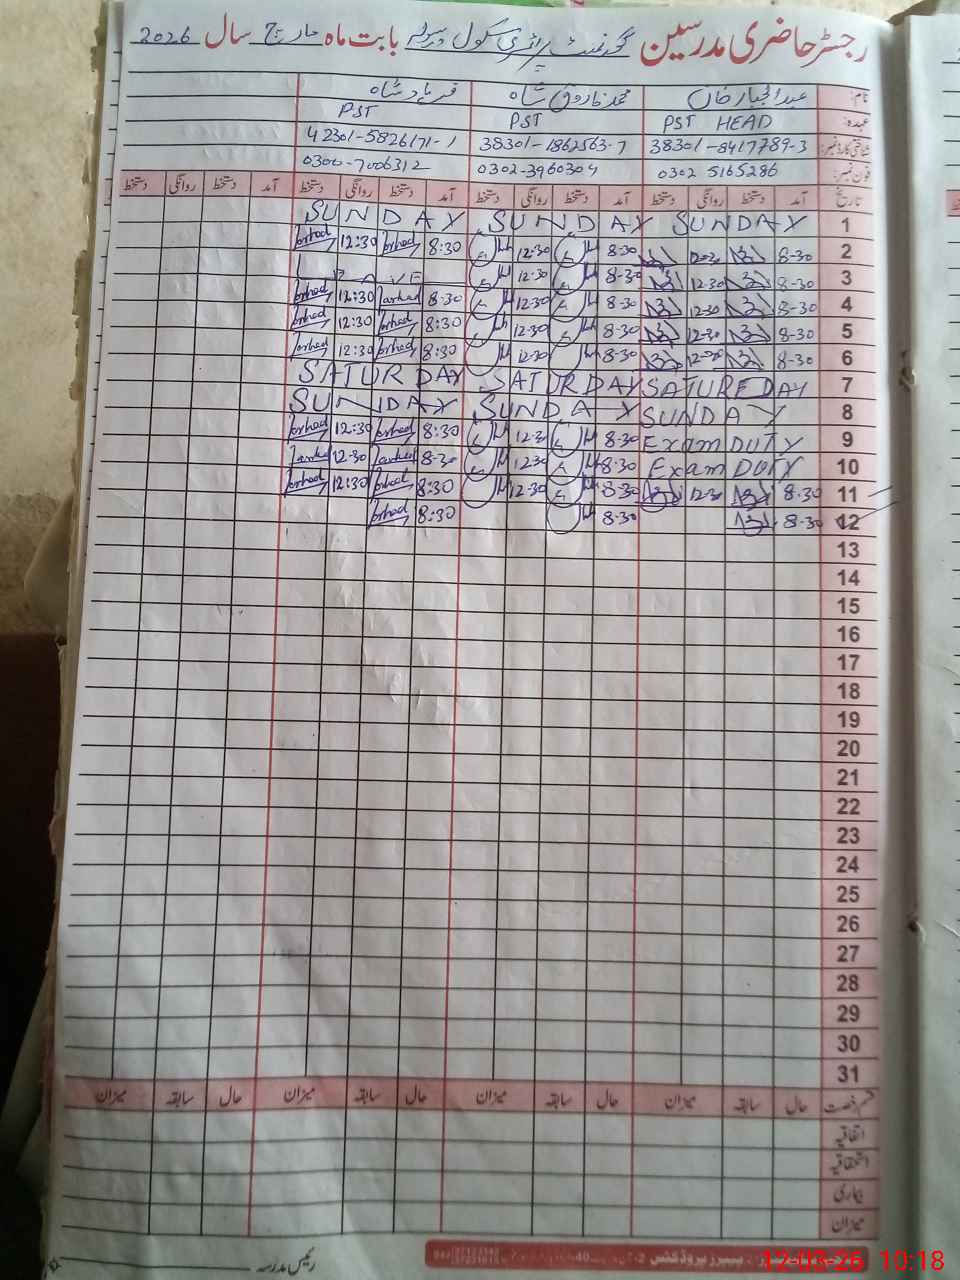 رجسٹر حاضری مدرسین گورنمنٹ پرائمری سکول بابت ماہ مارچ سال 2026
نام: عبدالجبار خان محمد فاروق شاہ فرہاد شاہ
عہدہ: PST HEAD PST PST
شناختی کارڈ نمبر: 38301-8417789-3 38301-1862563-7 42301-5826171-1
فون نمبر: 0302 5165286 0302-3960304 0300-7006312
تاریخ آمد دستخط روانگی دستخط آمد دستخط روانگی دستخط آمد دستخط روانگی دستخط آمد دستخط روانگی دستخط
1 SUNDAY SUNDAY SUNDAY
2 8-30 12-30 8-30 12-30 8:30 Farhad 12:30 Farhad
3 8-30 12-30 8-30 12-30 LEAVE
4 8-30 12-30 8-30 12-30 8-30 Farhad 12:30 Farhad
5 8-30 12-30 8-30 12-30 8:30 Farhad 12:30 Farhad
6 8-30 12-30 8-30 12-30 8:30 Farhad 12:30 Farhad
7 SATUREDAY SATURDAY SATURDAY
8 SUNDAY SUNDAY SUNDAY
9 Exam DUTY 8-30 12-30 8:30 Farhad 12:30 Farhad
10 Exam DUTY 8-30 12-30 8-30 Farhad 12-30 Farhad
11 8-30 12-30 8-30 12-30 8:30 Farhad 12:30 Farhad
12 8-30 8-30 8:30 Farhad
13
14
15
16
17
18
19
20
21
22
23
24
25
26
27
28
29
30
31
قسم رخصت حال سابقہ میزان حال سابقہ میزان حال سابقہ میزان حال سابقہ میزان
اتفاقیہ
استحقاقیہ
بیماری
میزان
رئیس مدرسہ
12-03-26 10:18